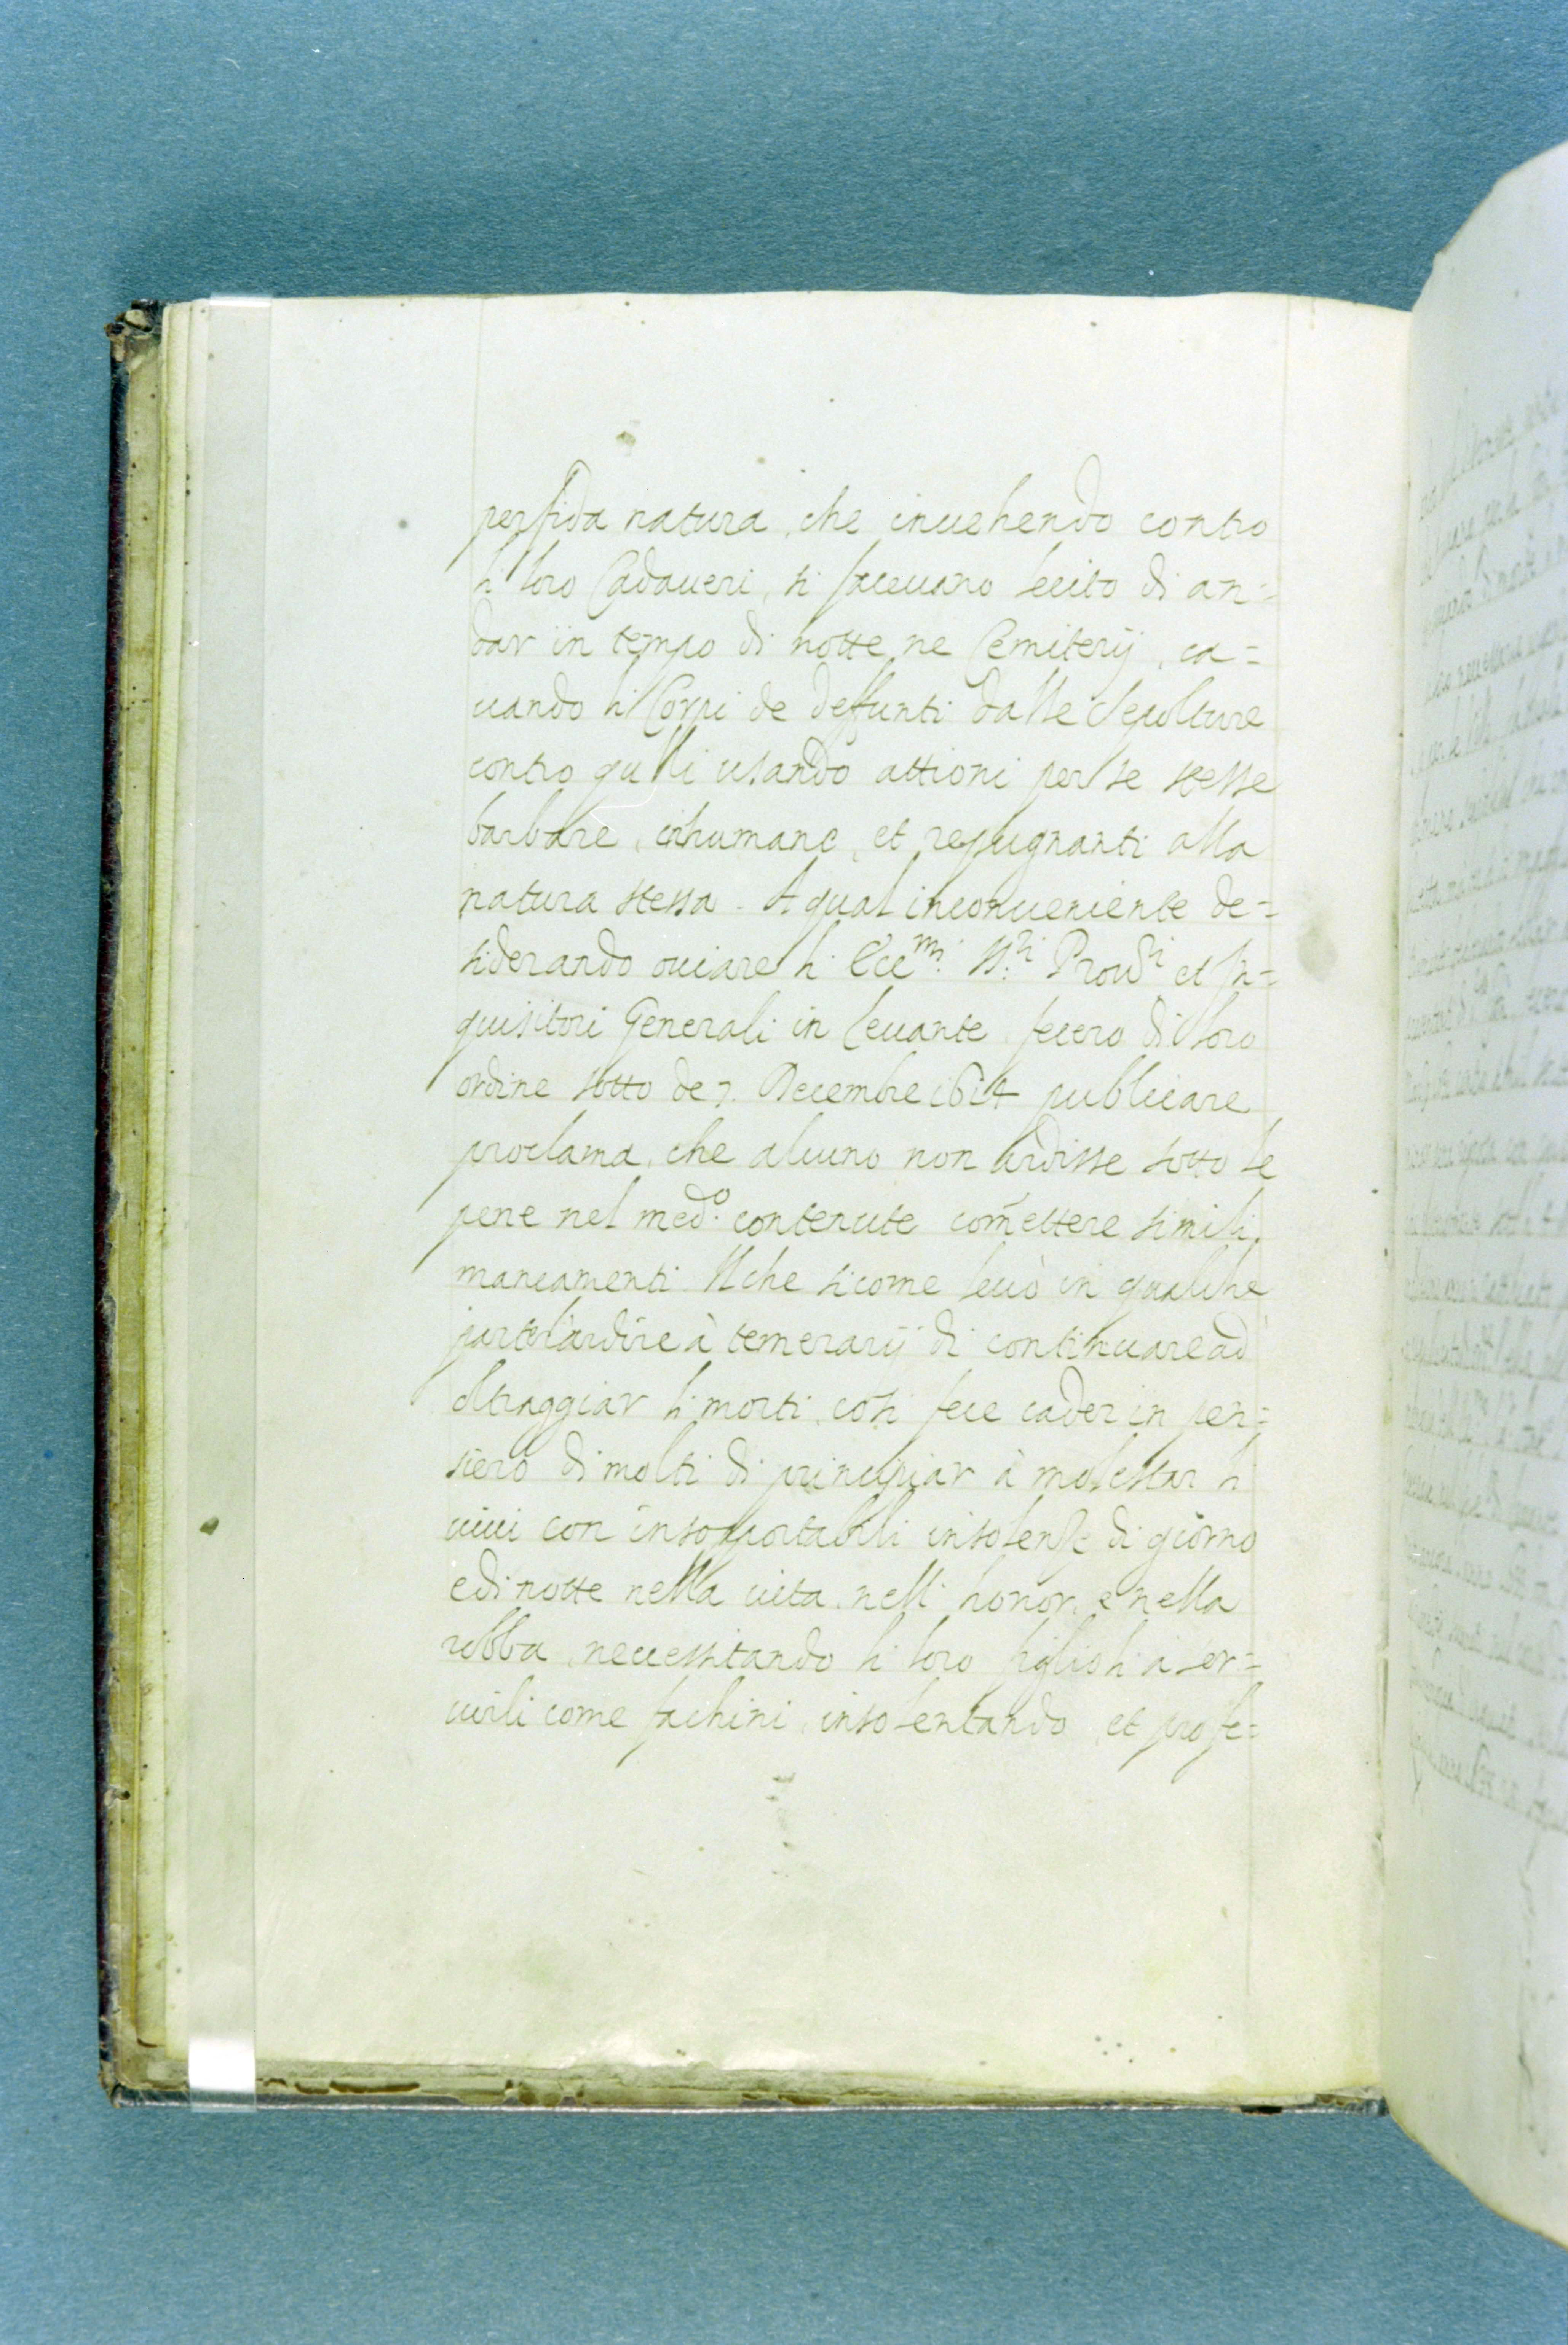 perfida natura, che inuehendo contro
li loro Cadaueri, si faceuano lecito di an=
dar in tempo di notte ne Cemiterij, ca=
uando li Corpi de deffunti dalle Sepolture
contro qu'lli usando attioni per se stesse
barbare, inhumane, et repugnanti alla
natura stessa. Al qual inconueniente de=
siderando ouiare li Ecc.mi S.ri Prou.ri et In=
quisitori Generali in leuante fecero di loro
ordine sotto de 7. Decembre 1614 publicare
proclama, che alcuno non ardisse sotto le
pene nel med.o contenute com̃ettere simili
mancamenti. Il che sicome leuò in qualche
parte l'ardire à temerarij di continuare ad
oltraggiar li morti, così fece cader in pen=
siero di molti di principiar à molestar li
uiui con insopportabili insolenze di giorno
e di notte nella uita, nell' honor, e nella
robba, necessitando li loro figlioli a ser=
uirli come fachini, insolentando, et profe=